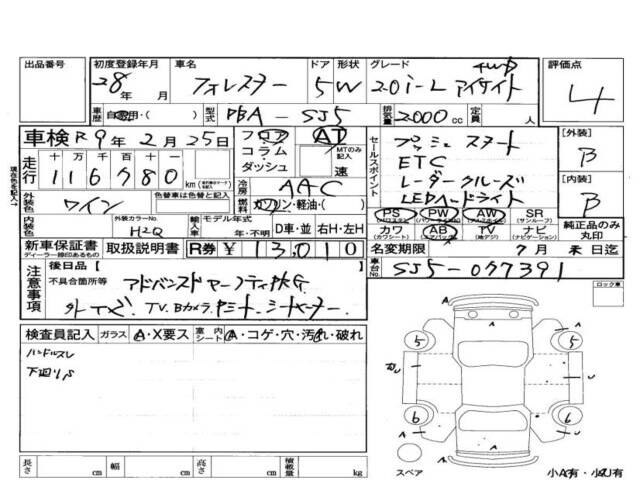 出品番号 初度登録年月 車名 ドア 形状 グレード 評価点
28年 月 フォレスター 5 W 2.0i-L アイサイト 4WD 4
車歴 自家用・( ) 型式 DBA-SJ5 排気量 2000cc 定員 人
車検 R9年2月25日 フロア コラム・ダッシュ AT MTのみ記入 速
セールスポイント
プッシュスタート
ETC
レーダークルーズ
LEDヘッドライト
[外装] B
[内装] B
走行 十 万 千 百 十 一
116780 km
冷房 AAC
燃料 ガソリン・軽油・( )
外装色 ワイン 色替車は色替と記入
内装色 外装カラーNo. H2Q 輸入車 モデル年式 年・不明 D車・並 右H・左H
PS PW AW SR
(パワーステアリング) (パワーウインドウ) (アルミホイール) (サンルーフ)
カワ AB TV ナビ
(カワシート) (エアバッグ) (地デジ) (ナビゲーション)
純正品のみ丸印
新車保証書 取扱説明書 R券 ¥13,010
ディーラー捺印あるもの
名変期限 7月末日迄
車台No. SJ5-077391
注意事項
後日品【 】
不具合箇所等
TV. Bカメラ.
ロック車
検査員記入 ガラス A・X要ス 室内シート A・コゲ・穴・汚れ・破れ
ハンドルスレ
下廻りS
5 5
6 6
A A A A U
スペア
長さ cm 幅 cm 高さ cm 積載量 kg
小A有・小U有